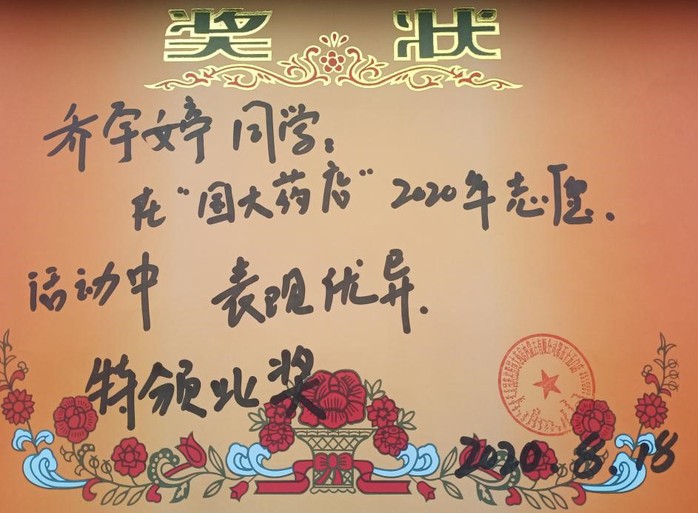 奖状
乔宇婷 同学:
在"国大药店" 2020年志愿.
活动中 表现优异.
特领此奖
2020.8.18